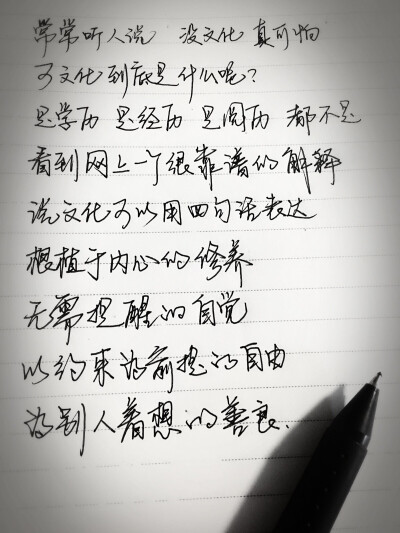 常常听人说 没文化 真可怕
可文化到底是什么呢?
是学历 是经历 是阅历 都不是
看到网上一个很靠谱的解释
说文化可以用四句话表达
根植于内心的修养
无需提醒的自觉
以约束为前提的自由
为别人着想的善良.